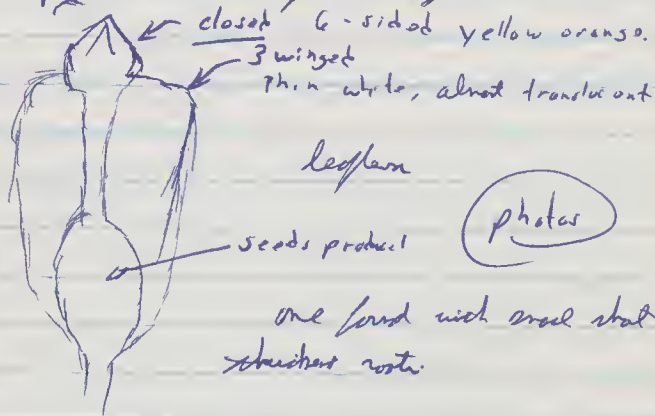 closed 6-sided yellow orange.
3 winged
Thin white, almost translucent
leafless
seeds produced
photos
one found with small
roots.